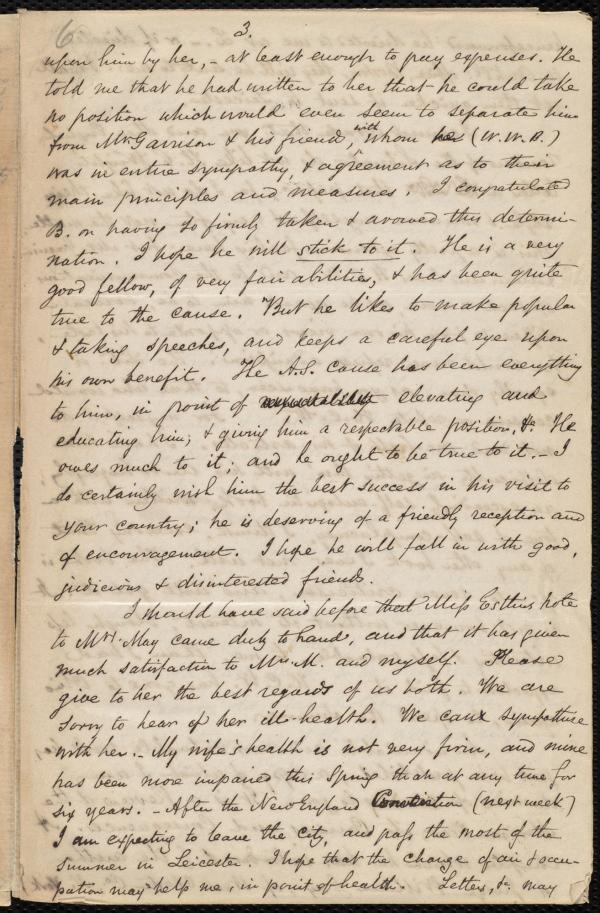 3.
upon him by her, - at least enough to pay expenses. He
told me that he had written to her that he could take
no position which would even seem to separate him
from Mr. Garrison & his friends, with whom he (W.W.B.)
was in entire sympathy, & agreement as to their
main principles and measures. I congratulated
B. on having so firmly taken & avowed this determi-
nation. I hope he will stick to it. He is a very
good fellow, of very fair abilities, & has been quite
true to the cause. But he likes to make popular
& taking speeches, and keeps a careful eye upon
his own benefit. The A.S. cause has been everything
to him, in point of elevating and
educating him; & giving him a respectable position, &c. He
owes much to it; and he ought to be true to it. - I
do certainly wish him the best success in his visit to
your country; he is deserving of a friendly reception and
of encouragement. I hope he will fall in with good,
judicious & disinterested friends.
I should have said before that Miss Estlin's note
to Mrs. May came duly to hand, and that it has given
much satisfaction to Mrs. M. and myself. Please
give to her the best regards of us both. We are
sorry to hear of her ill-health. We can sympathise
with her. - My wife's health is not very firm, and mine
has been more impaired this Spring than at any time for
six years. - After the New England Convention (next week)
I am expecting to leave the city, and pass the most of the
summer in Leicester. I hope that the change of air & occu-
pation may help me, in point of health. Letters, &c. may